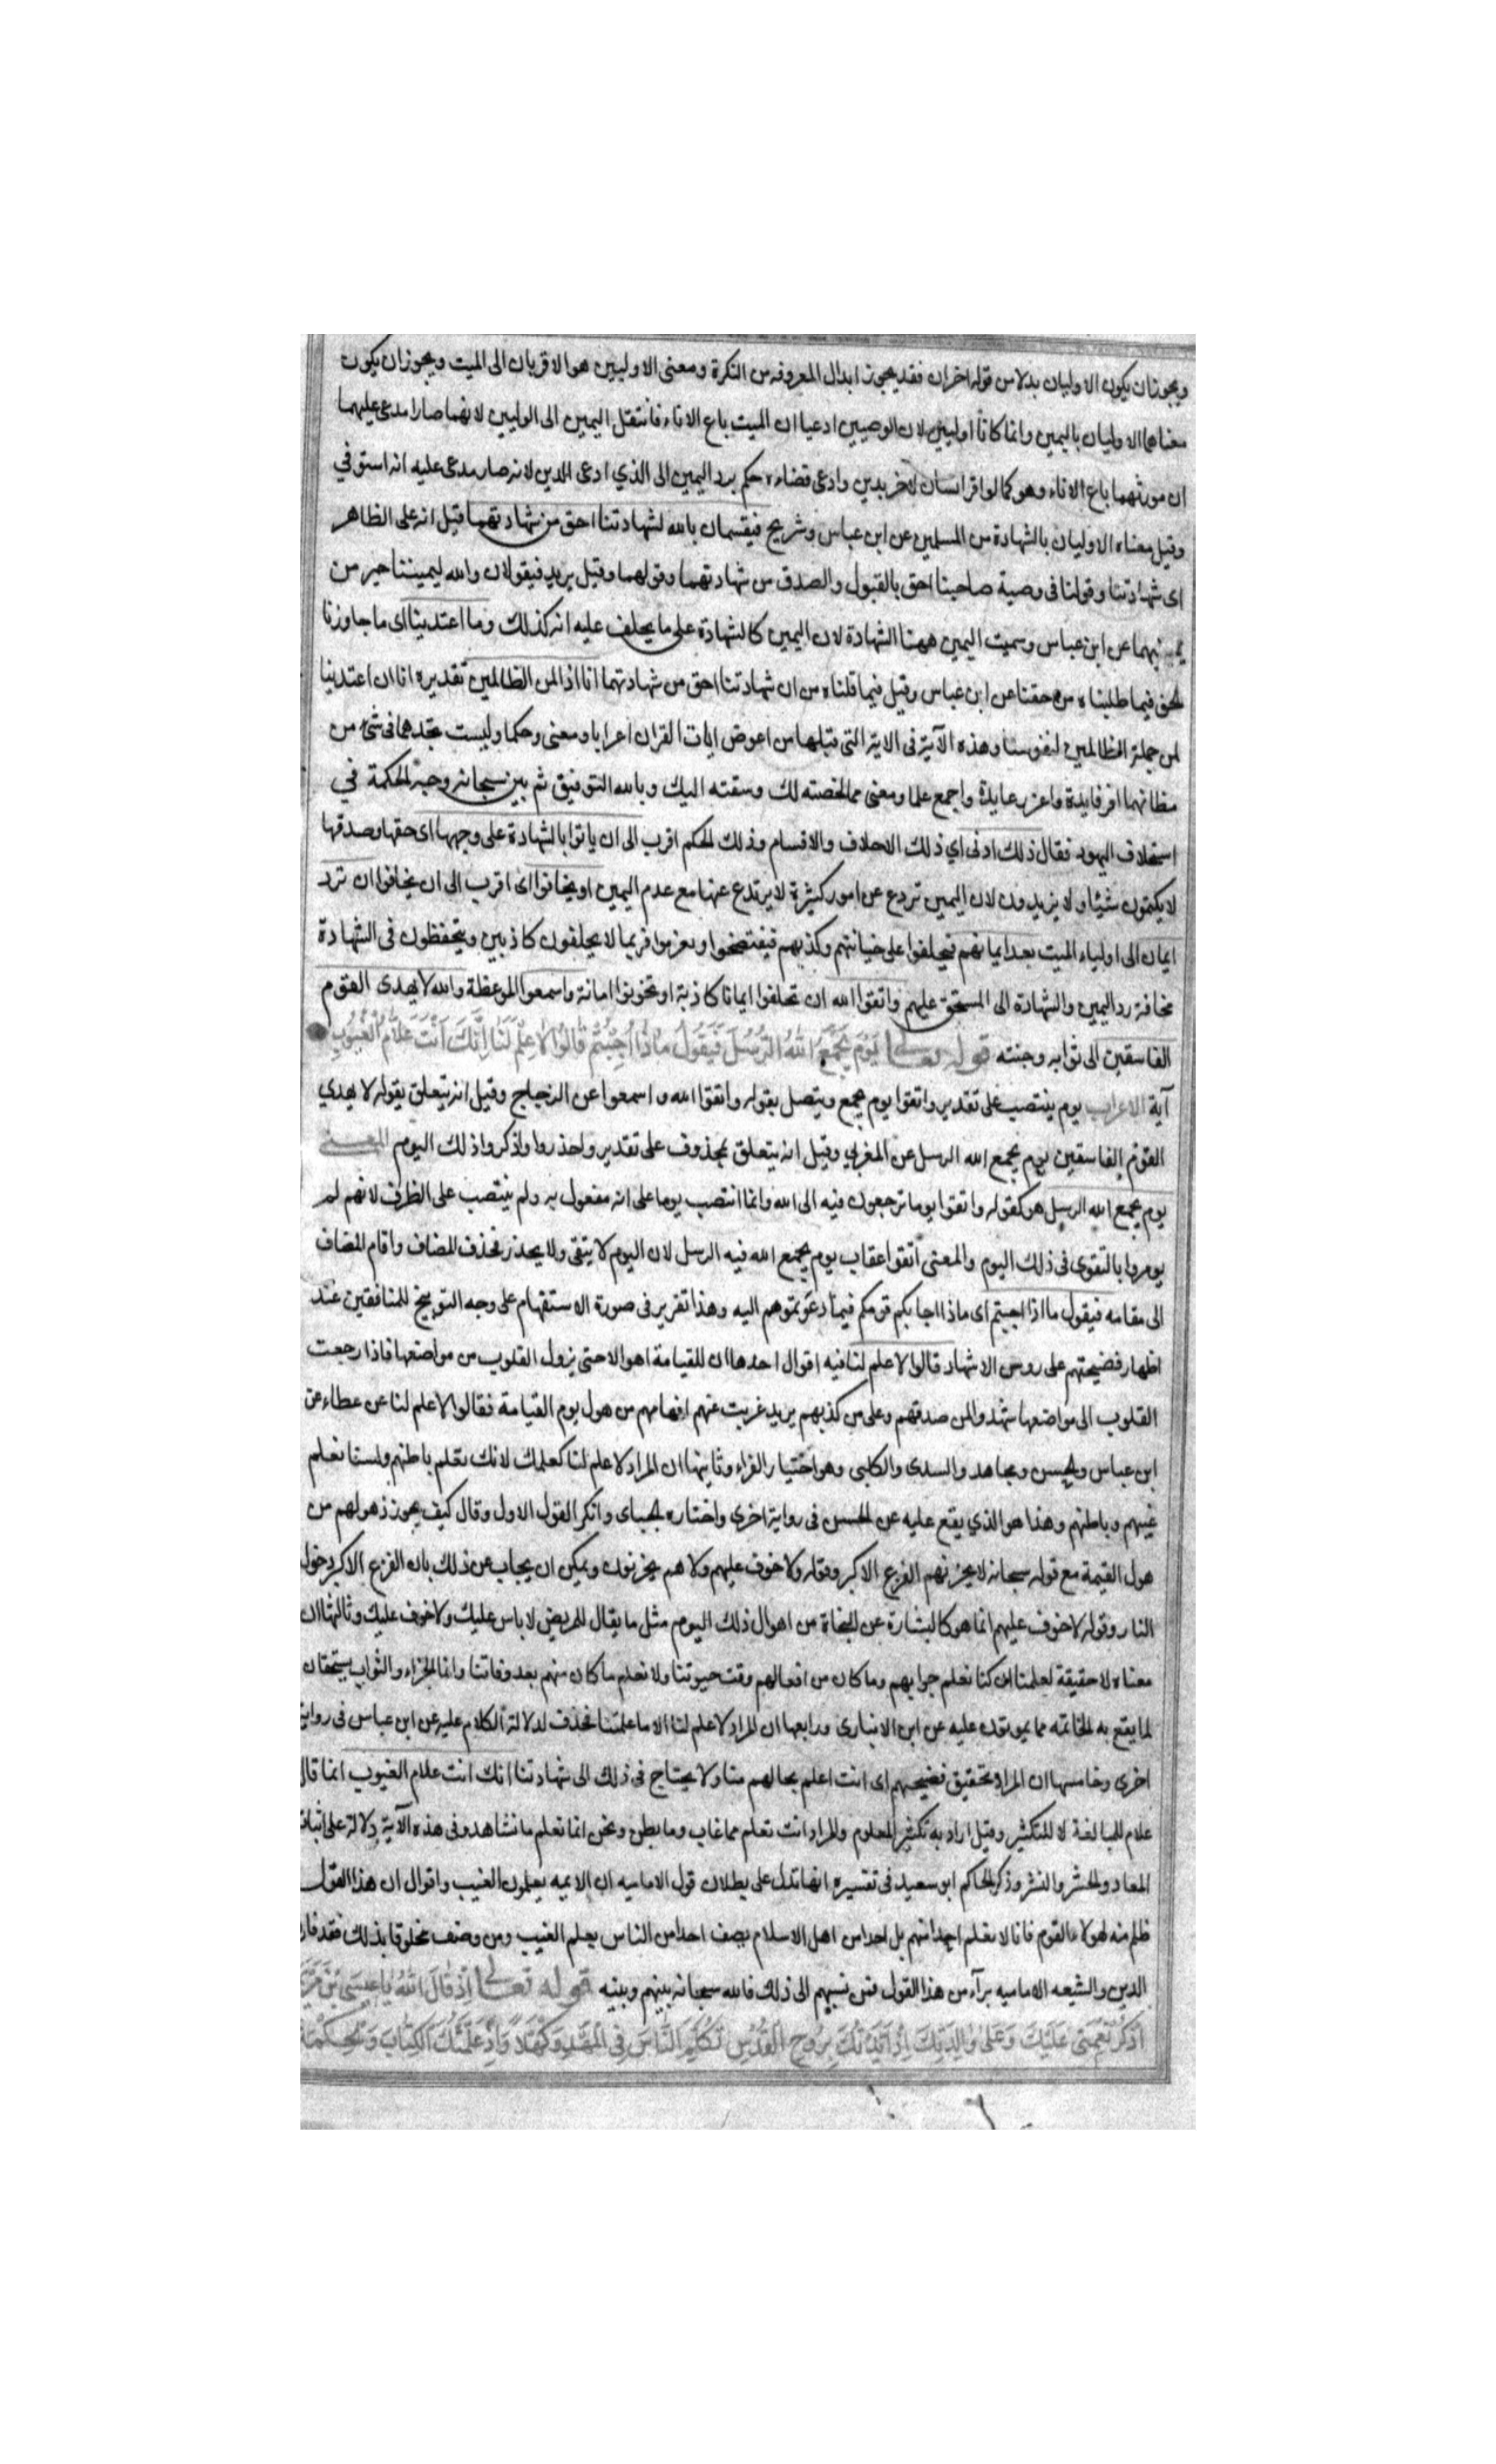 ويجوز ان يكون الاوليان بدلا من قوله اخران فقد يجوز ابدال المعرفه من النكرة ومعنى الاوليين هو الاقربان الى الميت ويجوز ان يكون
معناهما الاوليان باليمين وانما كانا اوليين لان الوصيين ادعيا ان الميت باع الاناء فانتقل اليمين الى الوليين لانهما صارا مدعى عليهما
ان مورثهما باع الاناء وهو كما لو اقر انسان لاخر بدين وادعى قضاءه حكم برد اليمين الى الذي ادعى الدين لانه صار مدعى عليه انه استوفي
وقيل معناه الاوليان بالشهادة من المسلمين عن ابن عباس وشريح فيقسمان بالله لشهادتنا احق من شهادتهما قيل انه على الظاهر
اى شهادتنا وقولنا فى وصية صاحبنا احق بالقبول والصدق من شهادتهما وقولهما وقيل يريد فيقولان والله ليميننا خير من
يمينهما عن ابن عباس وسميت اليمين ههنا الشهادة لان اليمين كالشهادة على ما يحلف عليه انه كذلك وما اعتدينا اى ما جاوزنا
الحق فيما طلبناه من حقنا عن ابن عباس وقيل فيما قلناه من ان شهادتنا احق من شهادتهما انا اذا لمن الظالمين تقديره انا ان اعتدينا
لمن جملة الظالمين لنفوسنا وهذه الآية فى الاية التى قبلها من اعوض ايات القران اعرابا ومعنى وحكما وليست تجدهما فى شئ من
مظانهما اوفر فايدة واعزر عايدة واجمع علما ومعنى مما لخصته لك وسقته اليك وبالله التوفيق ثم بين سبحانه وجه الحكمة في
استحلاف اليهود فقال ذلك ادنى اي ذلك الاحلاف والاقسام وذلك الحكم اقرب الى ان ياتوا بالشهادة على وجهها اى حقها وصدقها
لا يكتمون شيئا ولا يزيدون لان اليمين تردع عن امور كثيرة لا يرتدع عنها مع عدم اليمين او يخافوا اى اقرب الى ان يخافوا ان ترد
ايمان الى اولياء الميت بعد ايمانهم فيحلفوا على خيانتهم وكذبهم فيفتضحوا ويغرموا فربما لا يحلفون كاذبين ويتحفظون فى الشهادة
مخافة رد اليمين والشهادة الى المستحق عليهم واتقوا الله ان تحلفوا ايمانا كاذبة او تخونوا امانة واسمعوا الموعظة والله لا يهدى القوم
الفاسقين الى ثوابه وجنته قوله تعالى يَوْمَ يَجْمَعُ اللهُ الرُّسُلَ فَيَقُولُ مَاذَا اُجِبْتُمْ قَالُوا لَا عِلْمَ لَنَا اِنَّكَ اَنْتَ عَلَّامُ الْغُيُوبِ
آية الاعراب يوم ينتصب على تقدير واتقوا يوم يجمع ويتصل بقوله واتقوا الله واسمعوا عن الزجاج وقيل انه يتعلق بقوله لا يهدي
القوم الفاسقين يوم يجمع الله الرسل عن المغربي وقيل انه يتعلق بمحذوف على تقدير واحذروا واذكروا ذلك اليوم المعنى
يوم يجمع الله الرسل هو كقوله واتقوا يوما ترجعون فيه الى الله وانما انتصب يوما على انه مفعول به ولم ينتصب على الظرف لانهم لم
يومروا بالتقوى فى ذلك اليوم والمعنى اتقوا عقاب يوم يجمع الله فيه الرسل لان اليوم لا يتقى ولا يحذر فحذف المضاف واقام المضاف
الى مقامه فيقول ماذا اجبتم اى ماذا اجابكم قومكم فيما دعوتموهم اليه وهذا تقرير فى صورة الاستفهام على وجه التوبيخ للمنافقين عند
اظهار فضيحتهم على روس الاشهاد قالوا لا علم لنا فيه اقوال احدها ان للقيامة اهوالا حتى يزول القلوب من مواضعها فاذا رجعت
القلوب الى مواضعها شهدوا لمن صدقهم وعلى من كذبهم يريد غربت عنهم افهامهم من هول يوم القيامة فقالوا لا علم لنا عن عطاء عن
ابن عباس والحسن ومجاهد والسدى والكلبى وهو اختيار الفراء وثانيها ان المراد لا علم لنا كعلمك لانك تعلم باطنهم ولسنا نعلم
غيبهم وباطنهم وهذا هو الذي يقع عليه عن الحسن فى رواية اخرى واختاره الجباى وانكر القول الاول وقال كيف يجوز ذهولهم من
هول القيمة مع قوله سبحانه لا يحزنهم الفزع الاكبر وقوله ولا خوف عليهم ولا هم يحزنون ويمكن ان يجاب عن ذلك بان الفزع الاكبر دخول
النار وقوله لا خوف عليهم انما هو كالبشارة عن النجاة من اهوال ذلك اليوم مثل ما يقال للمريض لا باس عليك ولا خوف عليك وثالثها ان
معناه لا حقيقة لعلمنا اذ كنا نعلم جوابهم وما كان من افعالهم وقت حيوتنا ولا نعلم ما كان منهم بعد وفاتنا وانما الجزاء والثواب يستحقان
لما يقع به الخاتمة مما يموتون عليه عن ابن الانبارى ورابعها ان المراد لا علم لنا الا ما علمتنا فحذف لدلالة الكلام عليه عن ابن عباس فى رواية
اخرى وخامسها ان المراد تحقيق فضيحتهم اى انت اعلم بحالهم منا ولا يحتاج فى ذلك الى شهادتنا انك انت علام الغيوب انما قال
علام للمبالغة لا للتكثير وقيل اراد به تكثير المعلوم والمراد انت تعلم ما غاب وما بطن ونحن انما نعلم ما نشاهد وفى هذه الآية دلالة على اثبات
المعاد والحشر والنشر وذكر الحاكم ابو سعيد فى تفسيره انها تدل على بطلان قول الاماميه ان الايمه يعلمون الغيب واقوال ان هذا القول
ظلم منه لهولاء القوم فانا لا نعلم احدا منهم بل احدا من اهل الاسلام يصف احدا من الناس بعلم الغيب ومن وصف مخلوقا بذلك فقد فارق
الدين والشيعه الاماميه برآء من هذا القول فمن نسبهم الى ذلك فالله سبحانه بينهم وبينه قوله تعالى اِذْ قَالَ اللهُ يَا عِيسَى بْنَ مَرْيَمَ
اذْكُرْ نِعْمَتِى عَلَيْكَ وَعَلَى وَالِدَتِكَ اِذْ اَيَّدْتُكَ بِرُوحِ الْقُدُسِ تُكَلِّمُ النَّاسَ فِى الْمَهْدِ وَكَهْلًا وَاِذْ عَلَّمْتُكَ الْكِتَابَ وَالْحِكْمَةَ